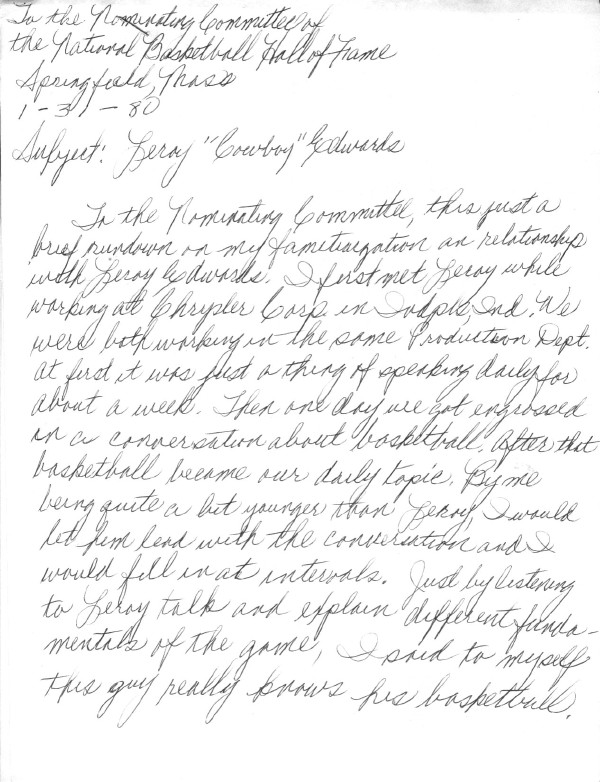 To the Nominating Committee of
the National Basketball Hall of Frame
Springfield, Mass
1-31-80
Subject: Leroy "Cowboy" Edwards
To the Nominating Committee, this just a
brief rundown on my familiarization an relationship
with Leroy Edwards. I first met Leroy while
working at Chrysler Corp. in Indpls, Ind. We
were both working in the same Production Dept.
at first it was just a thing of speaking daily for
about a week. Then one day we got engrossed
in a conversation about basketball. After that
basketball became our daily topic. By me
being quite a bit younger than Leroy, I would
let him lead with the conversation and I
would fill in at intervals. Just by listening
to Leroy talk and explain different funda-
mentals of the game, I said to myself
this guy really knows his basketball.